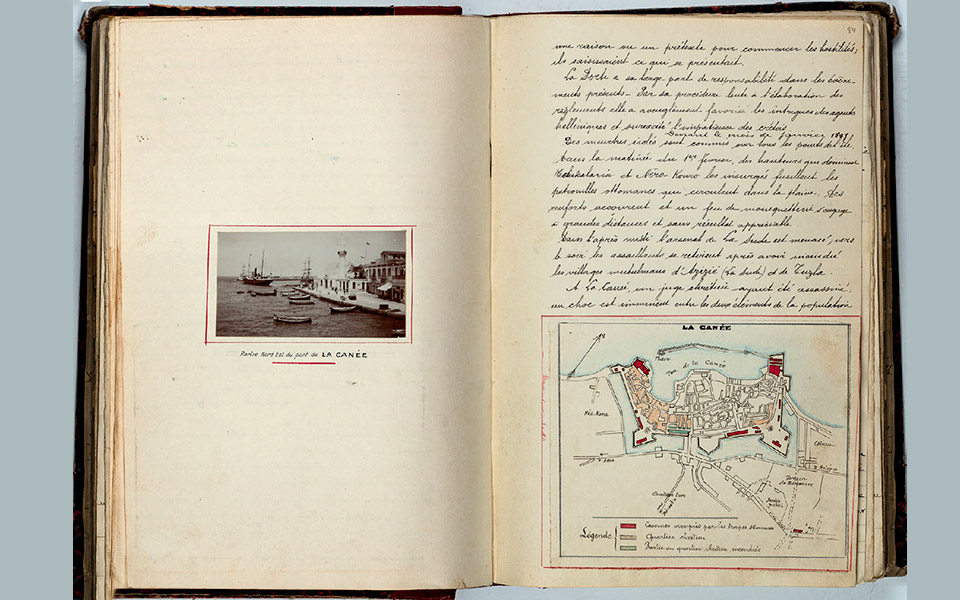 Partie Nord Est du port de LA CANÉE
84
une raison ou un prétexte pour commencer les hostilités;
ils saisissaient ce qui se présentait.
La Porte a sa large part de responsabilité dans les évène-
ments présents. Par sa procédure lente à l'élaboration des
règlements elle a aveuglément favorisé les intrigues des agents
helléniques et surexcité l'impatience des crétois.
Durant le mois de Janvier 1897
Des meurtres isolés sont commis sur tous les points de l'île
Dans la matinée du 1er février, des hauteurs qui dominent
et Néro-Kouro les insurgés fusillent les
patrouilles ottomanes qui circulent dans la plaine. Des
renforts accourent et un feu de mousquetterie s'engage
à grandes distances et sans résultat appréciable.
Dans l'après midi l'arsenal de La Sude est menacé, vers
le soir les assaillants se retirent après avoir incendié
les villages musulmans d'Azizié (La Sude) et de Tuzla.
A La Canée un juge chrétien ayant été assassiné,
un choc est imminent entre les deux éléments de la population
LA CANÉE
Phare
Port de la Canée
Légende
Casernes occupées par les troupes Ottomanes
Quartier chrétien
Partie du quartier chrétien incendiée